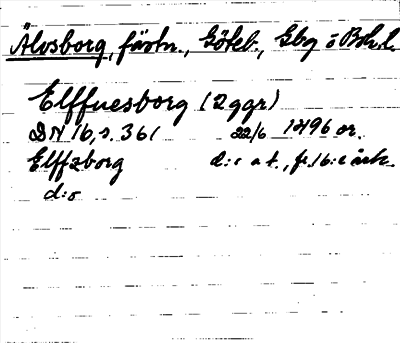 Älvsborg, fästn., Göteb., Gbg o Boh. l.
Elffuesborg (2 ggr)
DN 16, s. 361 22/6 1496 or.
Elffzborg d:o a t., fr. 16:e årh.
d:o